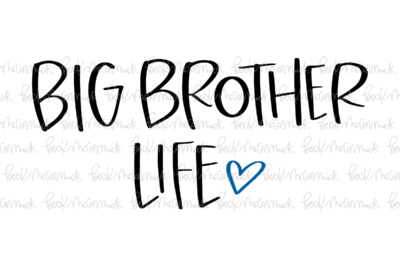 BIG BROTHER
LIFE